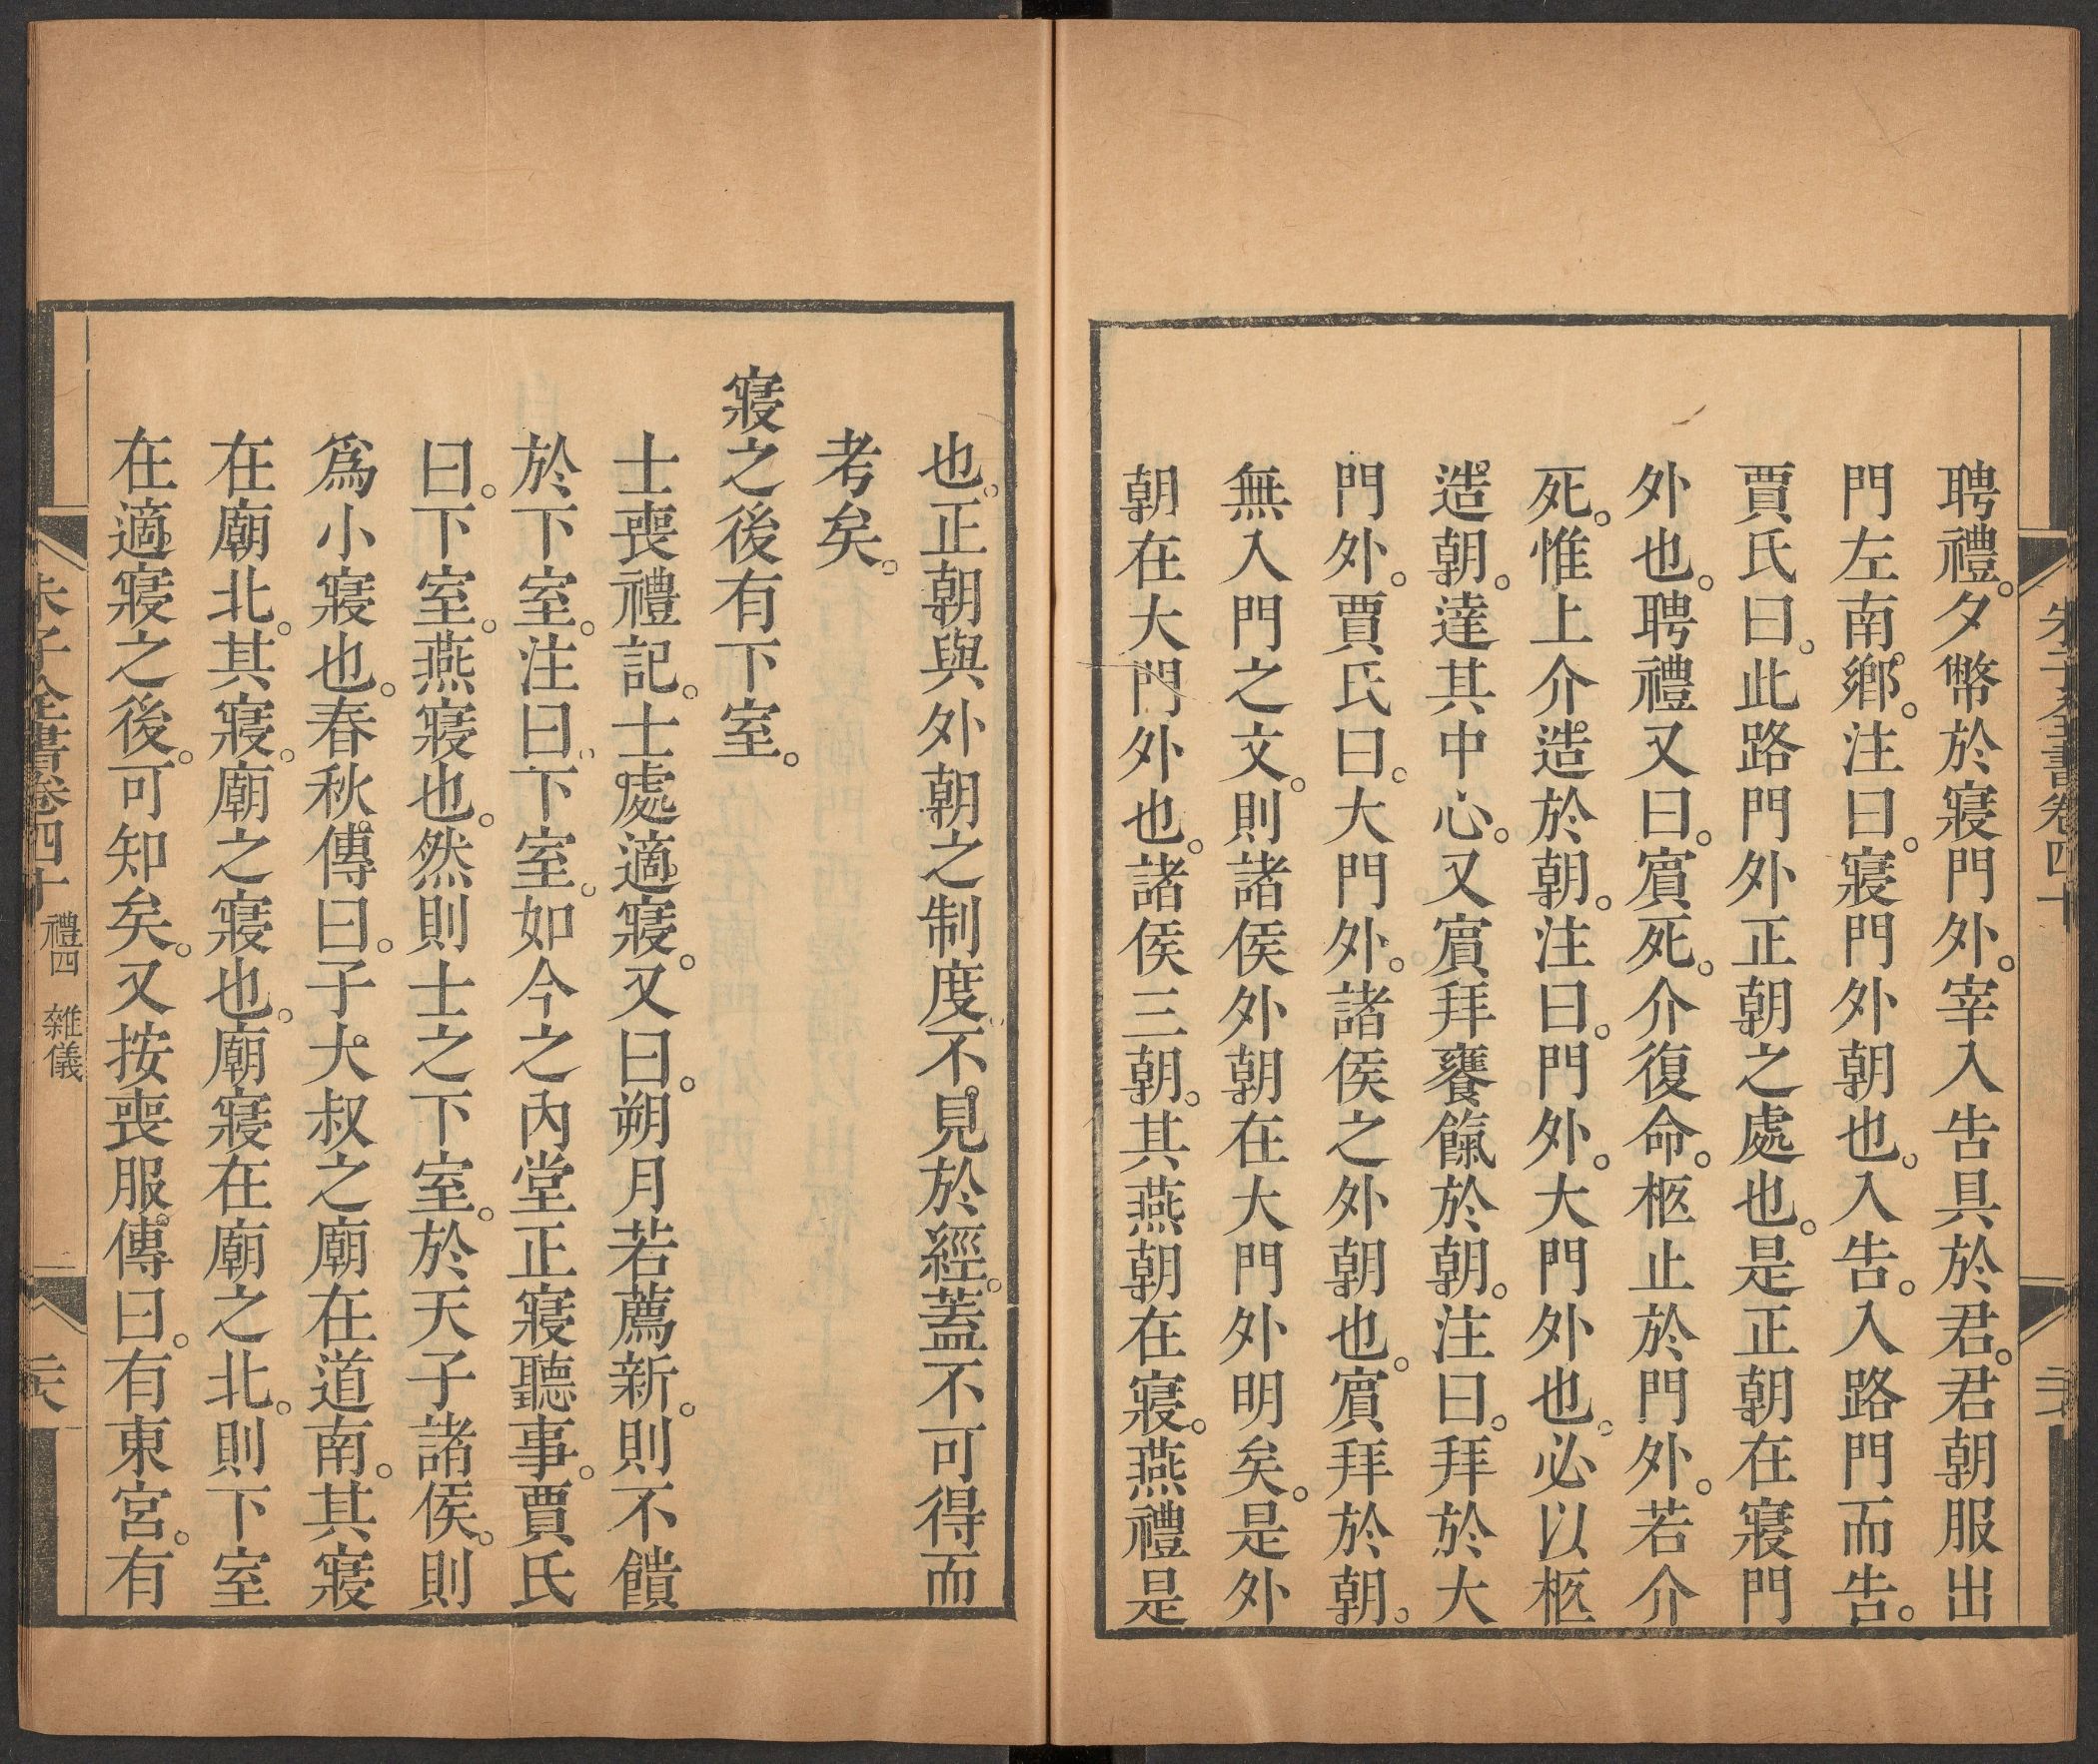 聘禮。夕幣於寢門外。宰入告具於君。君朝服出
門左南鄉。注曰。寢門外朝也。入告。入路門而告。
賈氏曰。此路門外正朝之處也。是正朝在寢門
外也。聘禮又曰。賔死。介復命。柩止於門外。若介
死。惟上介造於朝。注曰。門外。大門外也。必以柩
造朝。達其中心。又賔拜饔餼於朝。注曰。拜於大
門外。賈氏曰。大門外。諸侯之外朝也。賔拜於朝。
無入門之文。則諸侯外朝在大門外明矣。是外
朝在大門外也。諸侯三朝。其燕朝在寢。燕禮是
朱子全書卷四十
也。正朝與外朝之制度不見於經。蓋不可得而
考矣。
寢之後有下室。
士喪禮記。士處適寢。又曰。朔月若薦新。則不饋
於下室。注曰。下室。如今之內堂正寢聽事。賈氏
曰。下室。燕寢也。然則士之下室。於天子諸侯。則
爲小寢也。春秋傳曰。子大叔之廟在道南。其寢
在廟北。其寢。廟之寢也。廟寢在廟之北。則下室
在適寢之後。可知矣。又按喪服傳曰。有東宮。有
朱子全書卷四十 禮四 雜儀